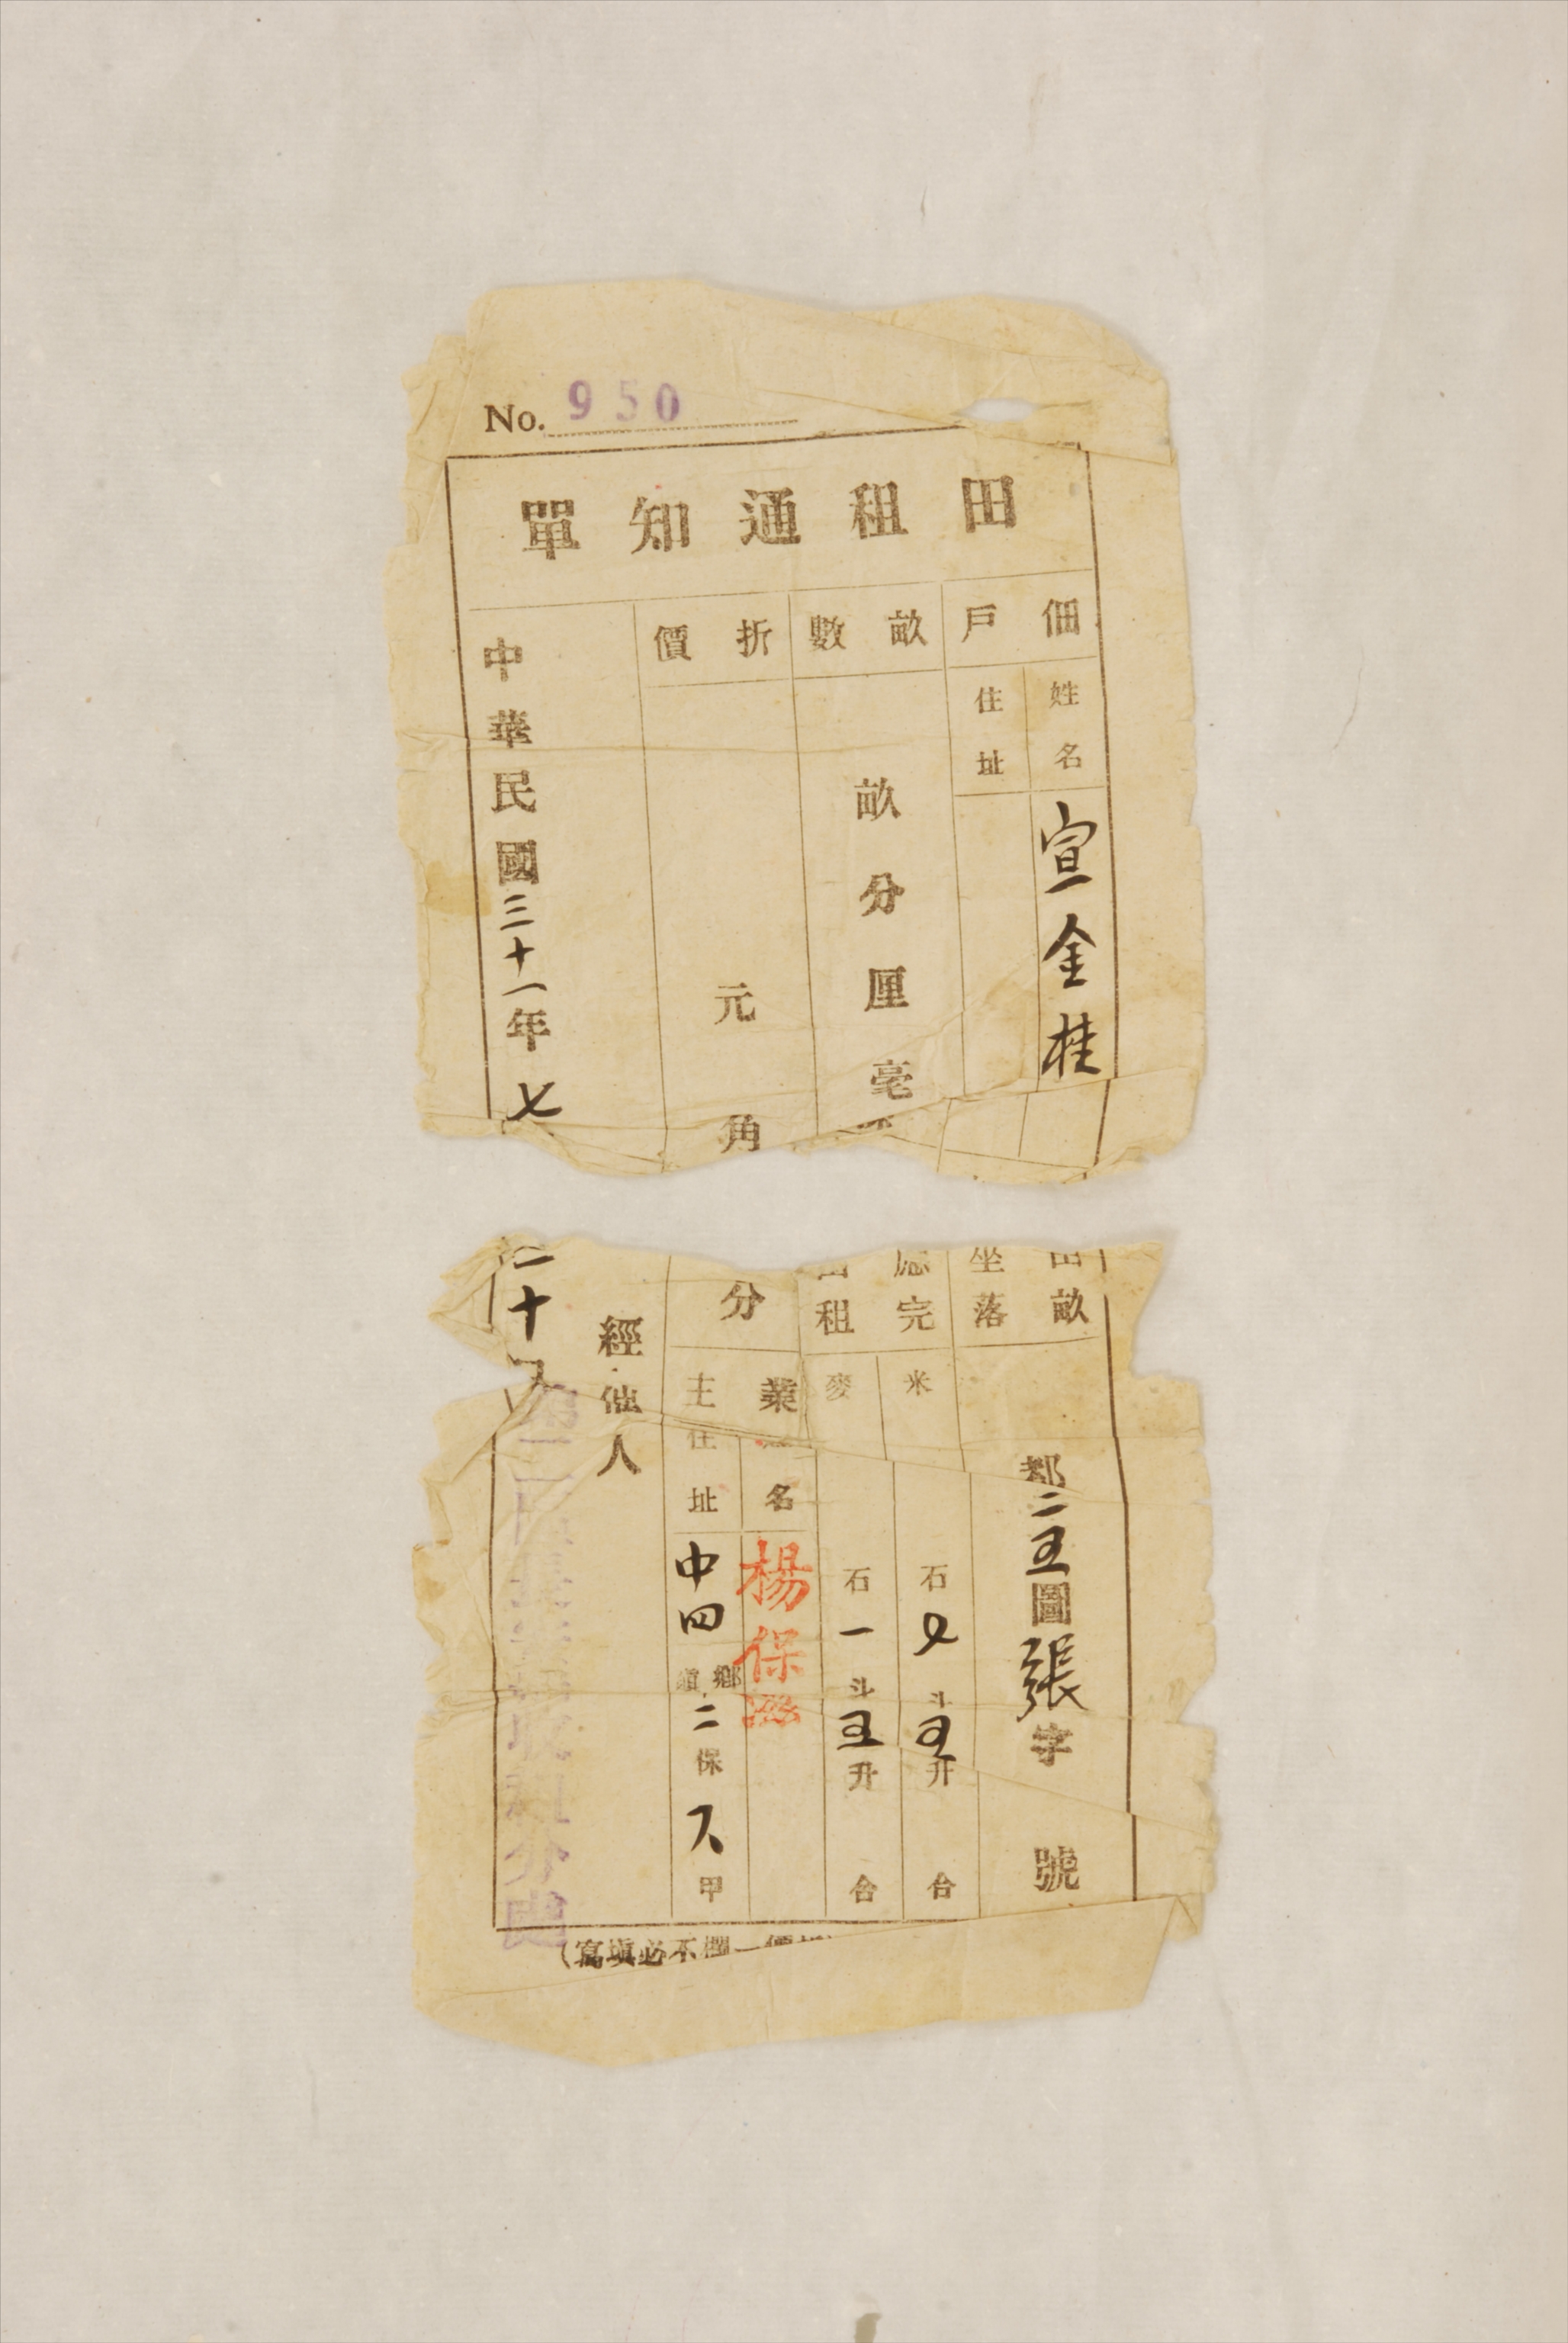 No. 950
田租通知單
佃戶
姓名 宣金桂
住址
田畝坐落
都二五圖張字 號
畝數
畝分厘毫
應完田租
米 石 斗五升 合
麥 石一斗五升 合
折價
元角分
業主
名 楊保滋
住址 中四鄉鎮二保 甲
經催人
中華民國三十一年七
二十
(寫填必不欄一價折